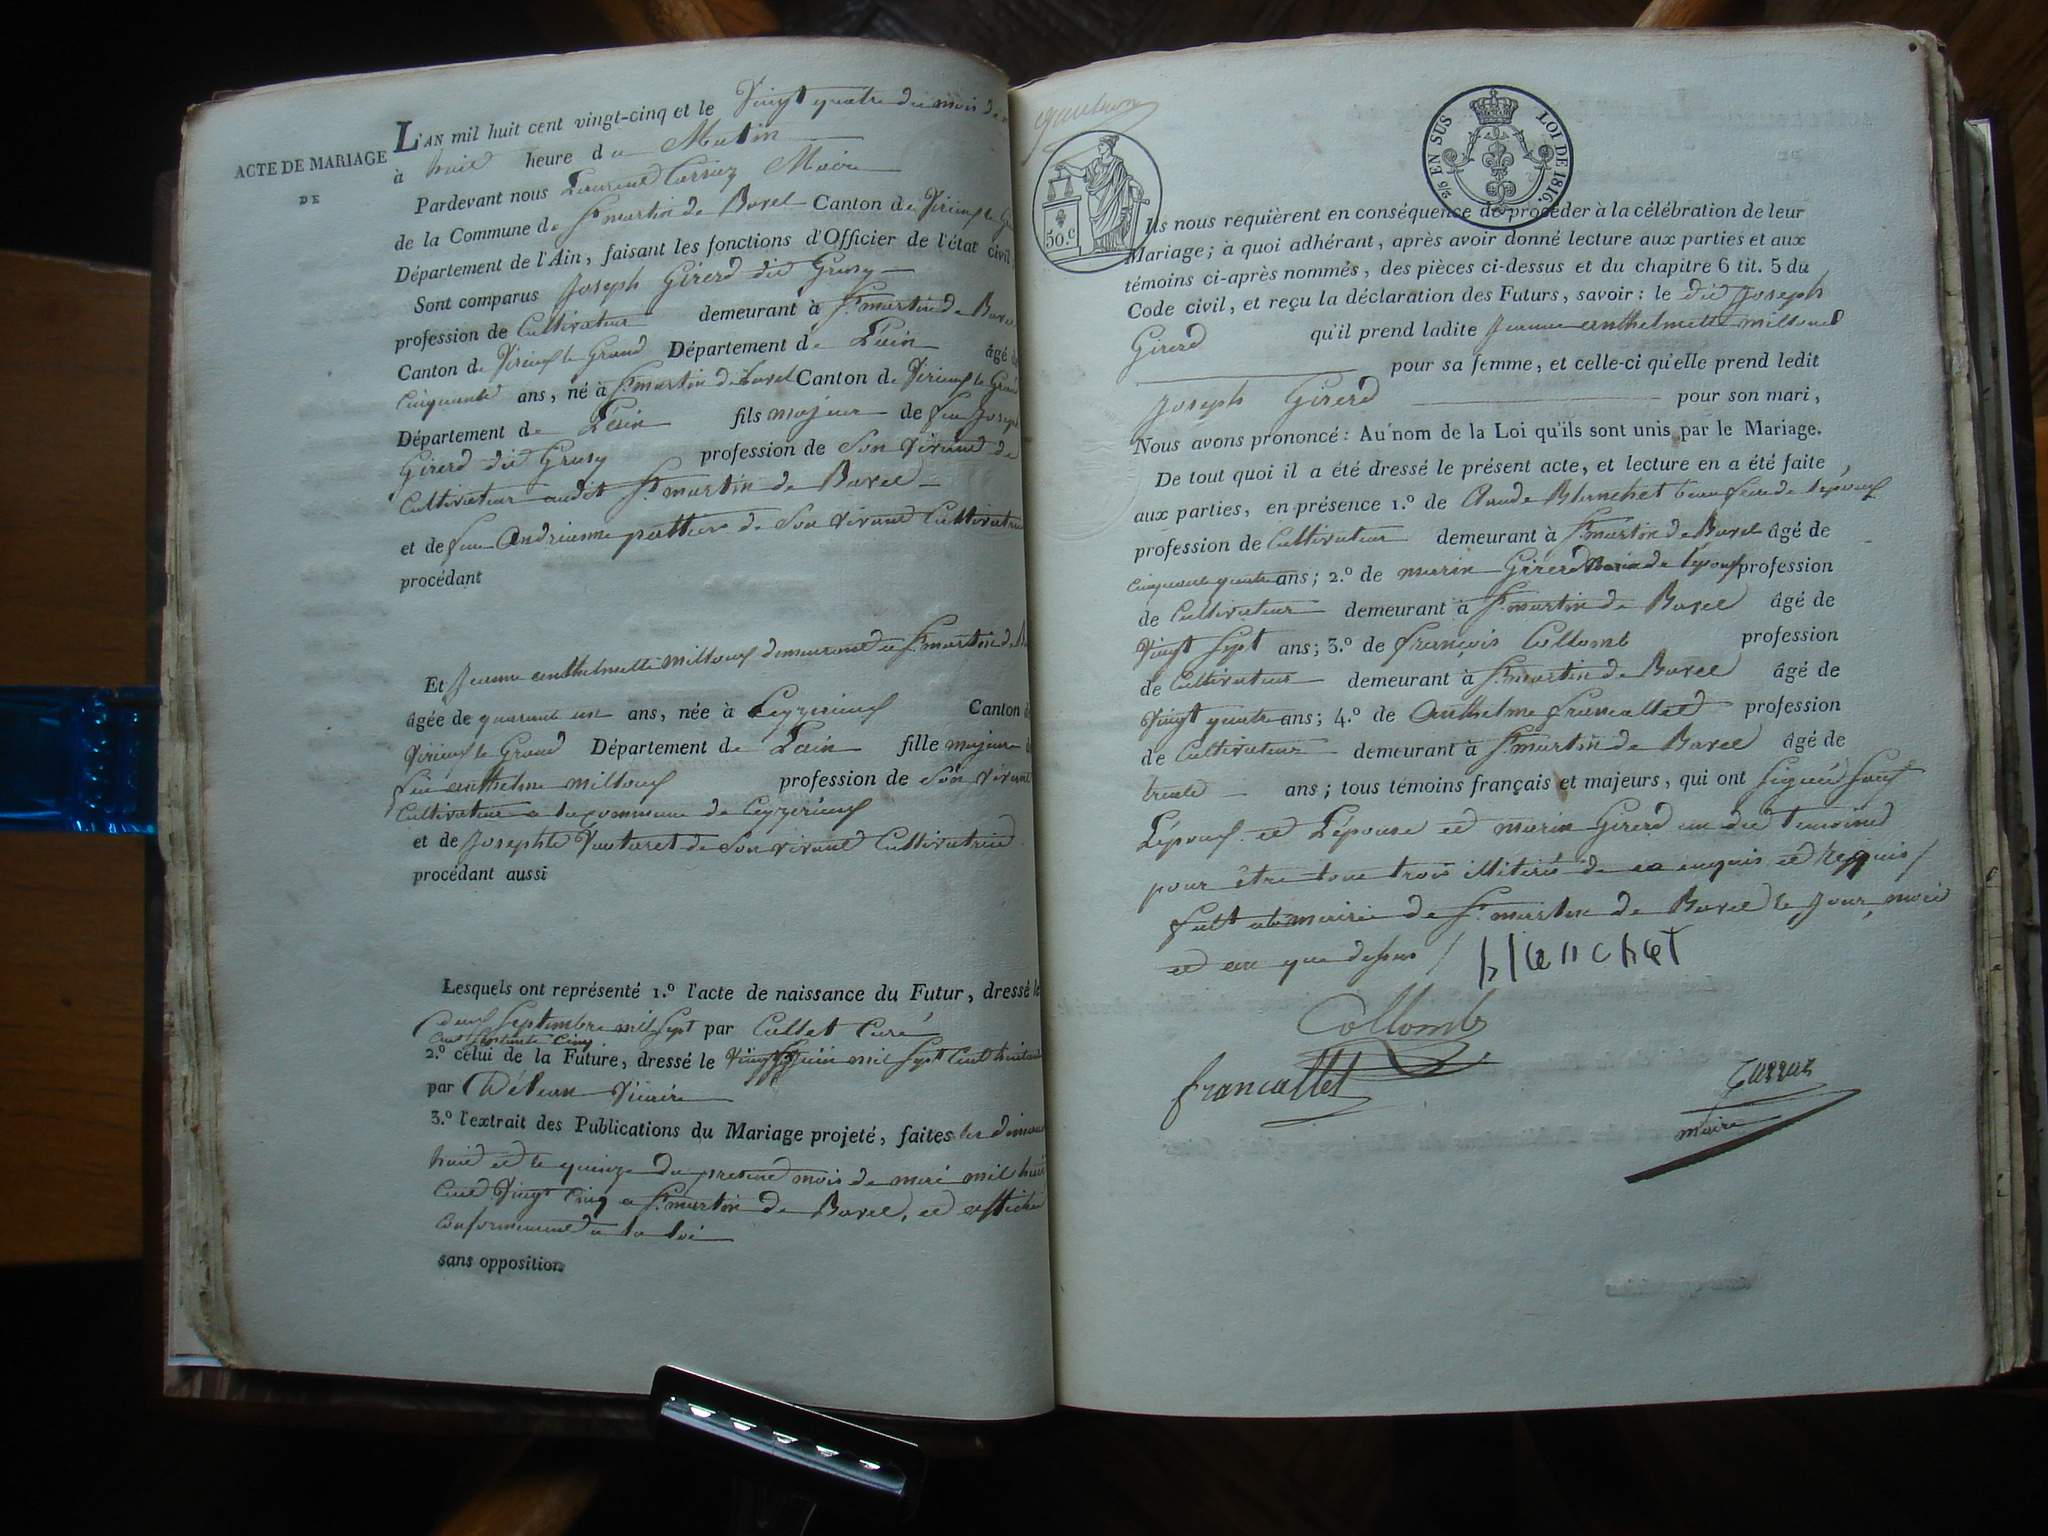 ACTE DE MARIAGE
DE
L'AN mil huit cent vingt-cinq et le Vingt quatre du mois de
à huit heure du Matin
Pardevant nous Laurent Carraz Maire
de la Commune de St martin de Bavel Canton de Virieux le Grand
Département de l'Ain, faisant les fonctions d'Officier de l'état civil
Sont comparus Joseph Girerd dit Grusy
profession de Cultivateur demeurant à St martin de Bavel
Canton de Virieux le Grand Département de L'ain âgé de
Cinquante ans, né à St martin de Bavel Canton de Virieux le Grand
Département de L'ain fils majeur de feu Joseph
Girerd dit Grusy profession de Son Vivant de
Cultivateur audit St martin de Bavel
et de feue Andrianne pottier de Son vivant Cultivatrice
procédant
Et Jeanne anthelmette milloux demeurant a St martin de
âgée de quarante un ans, née à Ceyzerieux Canton de
Virieux le Grand Département de L'ain fille majeure de
feu anthelme milloux profession de Son vivant
Cultivateur a la commune de Ceyzérieux
et de Josephte Vautaret de Son vivant Cultivatrice
procédant aussi
Lesquels ont représenté 1.º l'acte de naissance du Futur, dressé le
deux Septembre mil Sept par Cullet Curé
Cent Septante Cinq
2.º celui de la Future, dressé le juin mil Sept Cent huitante
par Vicaire
3.º l'extrait des Publications du Mariage projeté, faites les dimanches
huit et le quinze du present mois de mai mil huit
Cent Vingt Cinq a St martin de Bavel, et affiché
Conformement a la loi
sans opposition
50.c
2/5 EN SUS LOI DE 1816.
Ils nous requièrent en conséquence de procéder à la célébration de leur
Mariage; à quoi adhérant, après avoir donné lecture aux parties et aux
témoins ci-après nommés, des pièces ci-dessus et du chapitre 6 tit. 5 du
Code civil, et reçu la déclaration des Futurs, savoir: le dit Joseph
Girerd qu'il prend ladite Jeanne anthelmette milloux
pour sa femme, et celle-ci qu'elle prend ledit
Joseph Girerd pour son mari,
Nous avons prononcé: Au nom de la Loi qu'ils sont unis par le Mariage.
De tout quoi il a été dressé le présent acte, et lecture en a été faite
aux parties, en présence 1.º de Claude Blanchet beau frere de l'époux
profession de Cultivateur demeurant à St martin de Bavel âgé de
Cinquante quatre ans; 2.º de marin Girerd de l'époux profession
de Cultivateur demeurant à St martin de Bavel âgé de
Vingt Sept ans; 3.º de françois Collomb profession
de Cultivateur demeurant à St martin de Bavel âgé de
Vingt quatre ans; 4.º de Anthelme francallet profession
de Cultivateur demeurant à St martin de Bavel âgé de
trente ans; tous témoins français et majeurs, qui ont Signé Sauf
L'époux et L'épouse et marin Girerd un des temoins
pour être tous trois illiterés de ce enquis et Requis /
fait a la mairie de St martin de Bavel le Jour, mois
et an que dessus /
blanchet
Collomb
francallet
Carraz
maire